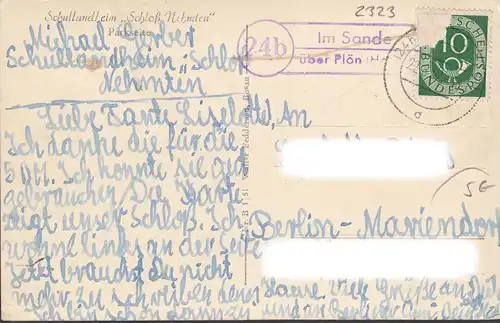 2323
Schullandheim „Schloß Nehmten"
Parkseite
Michael
Schullandheim Schloß
Nehmten
24b
Im Sande
über Plön
10
DEUTSCHE BUNDESPOST
Liebe Tante Liselotte, An
Ich danke dir für die
5 DM. Ich konnte sie gut
gebrauchen. Die Karte
zeigt unser Schloß. Ich
wohne links an der
Jetzt brauchst Du nicht
mehr zu schreiben denn
Ich bin schon
Hause Viele Grüße an Dich
und in Berlin
Berlin-Mariendorf
5€